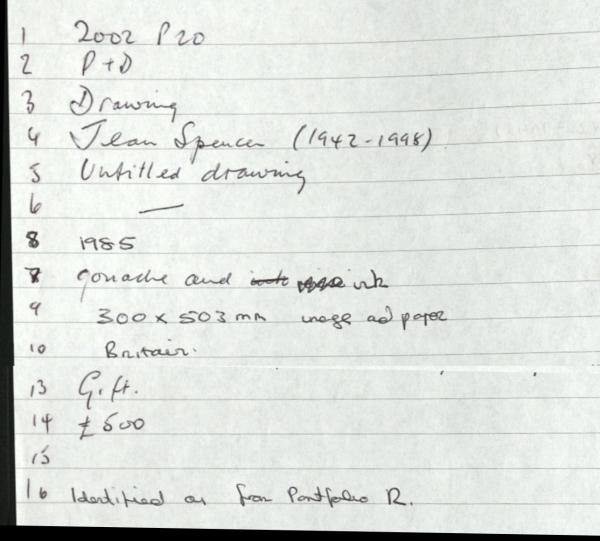 1 2002 P20
2 P+D
3 Drawing
4 Jean Spencer (1942-1998)
5 Untitled drawing
6 —
8 1985
8 gouache and ink
9 300 x 503 mm image ad paper
10 Britain.
13 Gift.
14 £500
15
16 Identified as from Portfolio R.